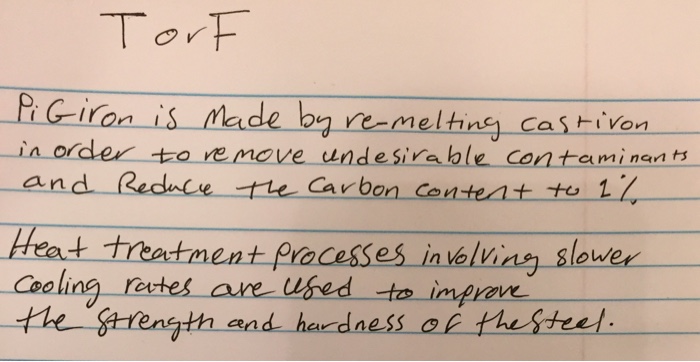 T or F
Pig iron is Made by re-melting cast iron
in order to remove undesirable contaminants
and Reduce the Carbon content to 1%
Heat treatment processes involving slower
Cooling rates are used to improve
the strength and hardness of the steel.